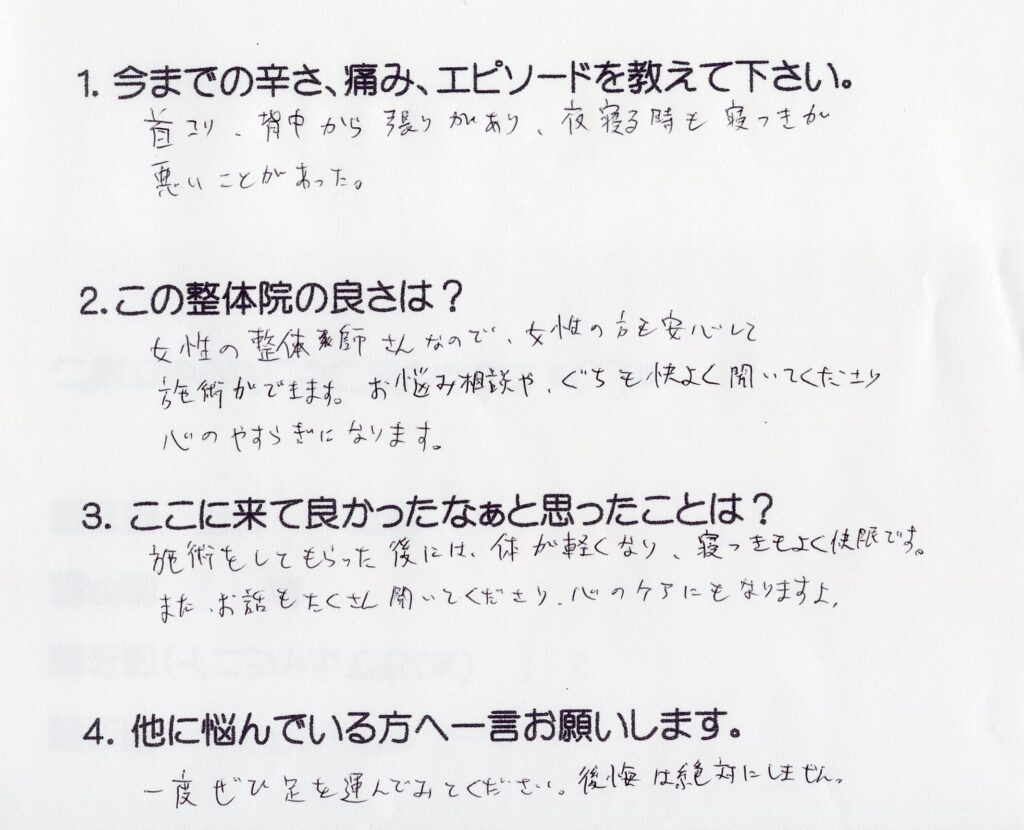 1. 今までの辛さ、痛み、エピソードを教えて下さい。
首コリ、背中から張りがあり、夜寝る時も寝つきが
悪いことがあった。
2. この整体院の良さは？
女性の整体師さんなので、女性の方も安心して
施術ができます。お悩み相談や、ぐちも快よく聞いてくださり
心のやすらぎになります。
3. ここに来て良かったなぁと思ったことは？
施術をしてもらった後には、体が軽くなり、寝つきもよく快眠です。
また、お話もたくさん聞いてくださり、心のケアにもなりますよ。
4. 他に悩んでいる方へ一言お願いします。
一度ぜひ足を運んでみてください。後悔は絶対にしません。